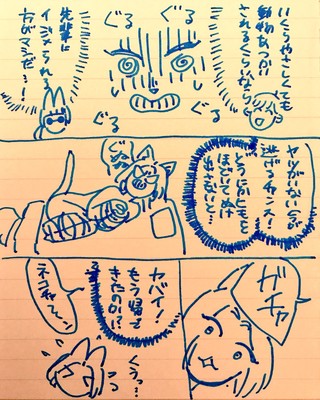 いくらやさしくても
動物あつかい
されるくらいなら
ぐる
ぐる
ぐる
ぐる
先輩に
イジメられる
方がマシだ…！
ヤツがいない今が
逃げるチャンス！
どうにかヒモを
ほどいてぬけ
ガチャ
ヤバイ！
もう帰って
きたのか!?
くぅっ…
ネコチャ〜ン